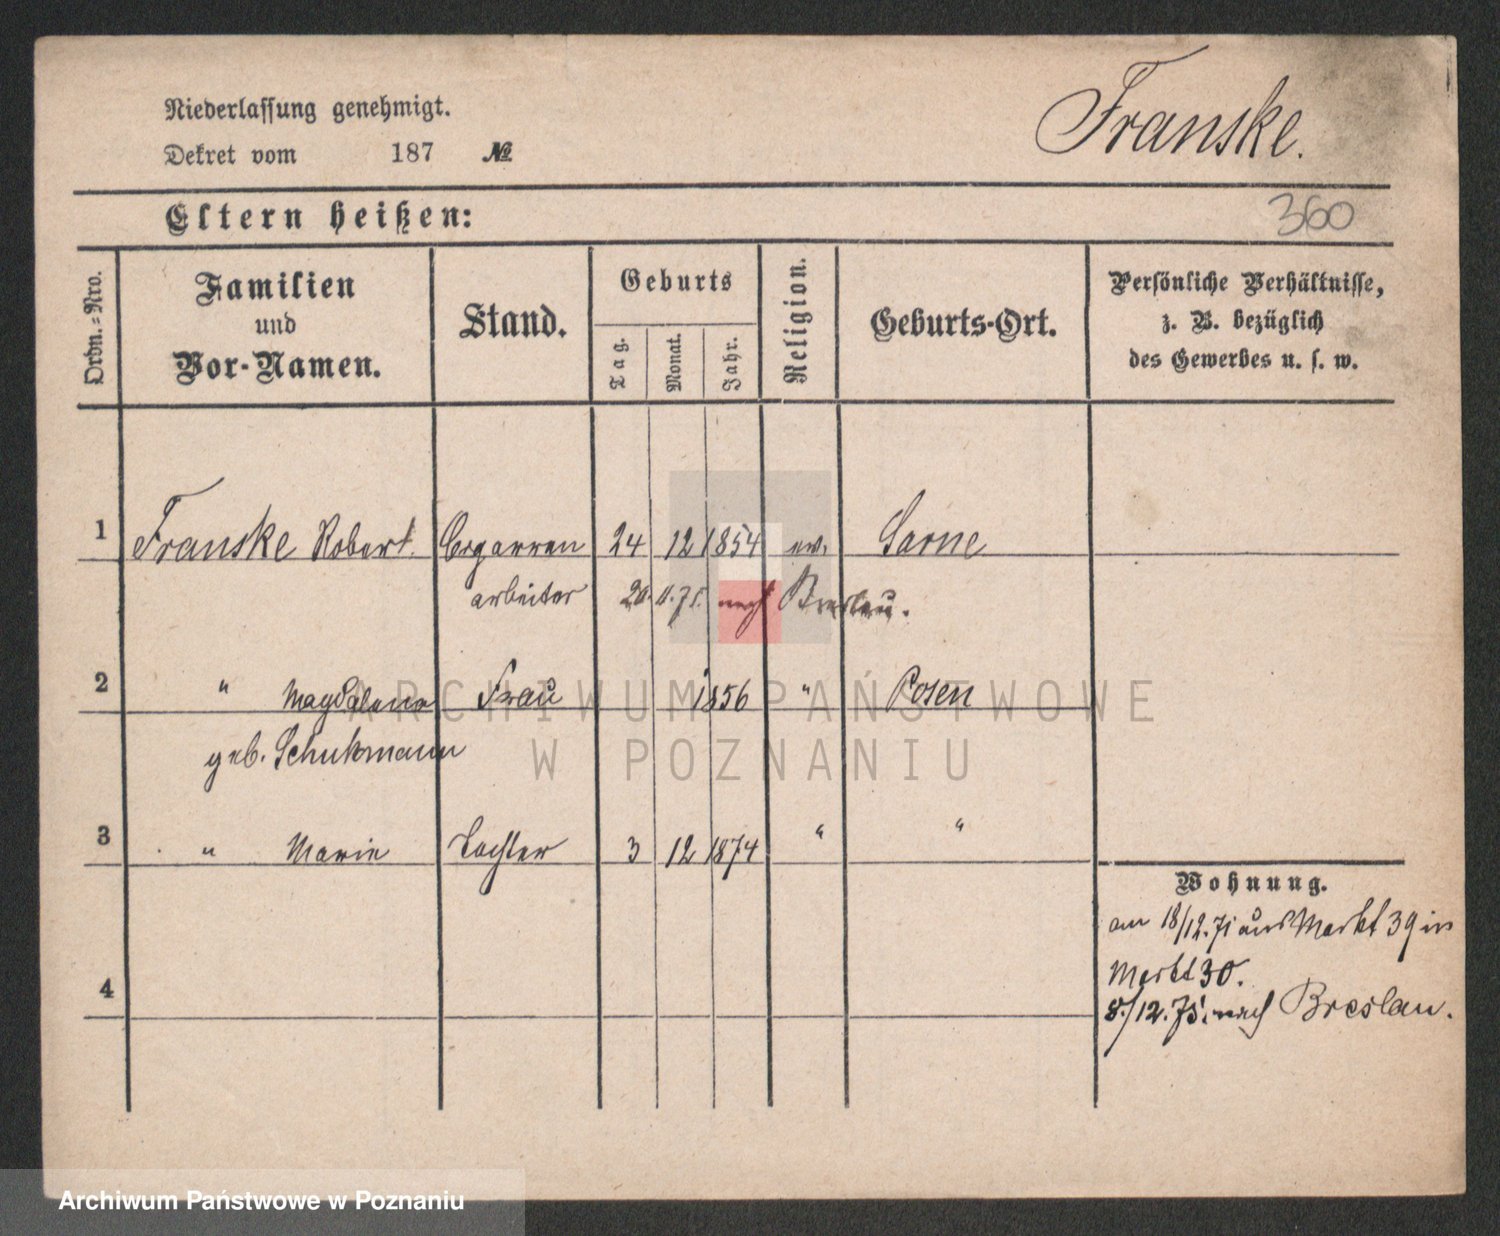 Niederlassung genehmigt.
Dekret vom 187 №
Franske.
Eltern heißen:
360
Ordn.-Nro.
Familien
und
Vor-Namen.
Stand.
Geburts
Tag.
Monat.
Jahr.
Religion.
Geburts-Ort.
Persönliche Verhältnisse,
z. B. bezüglich
des Gewerbes u. s. w.
1 Franske Robert. Cigarren 24 12 1854 ev. Sarne
arbeiter 20. 11. 75. nach Breslau.
2 " Magdalena Frau 1856 " Posen
geb. Schukmann
3 " Marie Tochter 3 12 1874 " "
Wohnung.
am 18/12. 71 aus Markt 39 in
Markt 30.
4
8./12. 75. nach Breslau.
ARCHIWUM PAŃSTWOWE
W POZNANIU
Archiwum Państwowe w Poznaniu